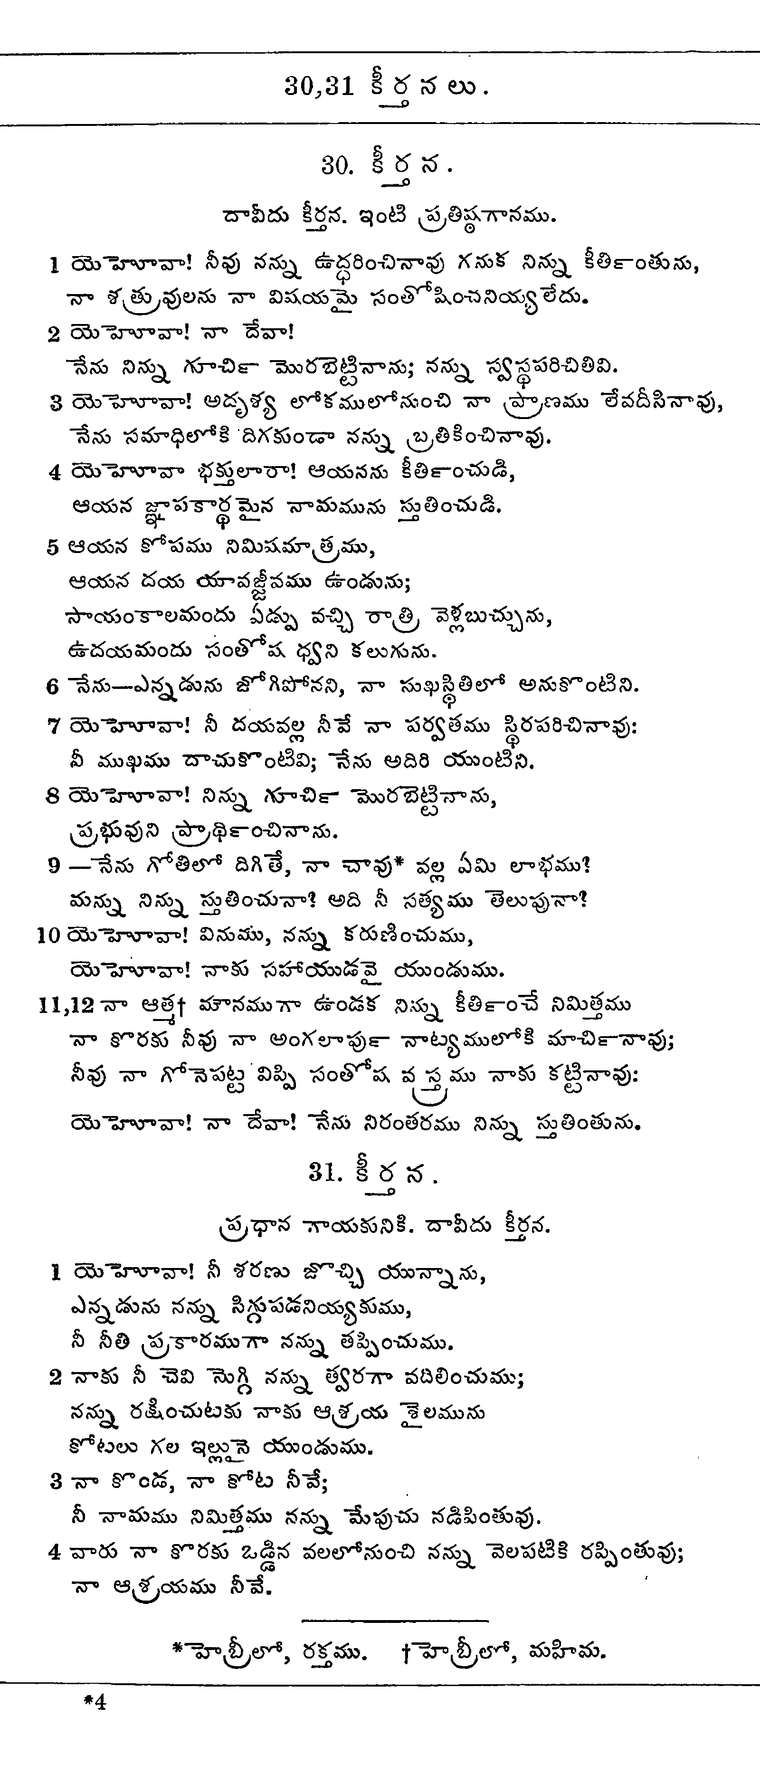 30,31 కీర్తనలు.
30. కీర్తన.
దావీదు కీర్తన. ఇంటి ప్రతిష్ఠగానము.
1 యెహోవా! నీవు నన్ను ఉద్ధరించినావు గనుక నిన్ను కీతిఁంతును,
నా శత్రువులను నా విషయమై సంతోషించనియ్యలేదు.
2 యెహోవా! నా దేవా!
నేను నిన్ను గూచిఁ మొరబెట్టినాను; నన్ను స్వస్థపరిచితివి.
3 యెహోవా! అదృశ్య లోకములోనుంచి నా ప్రాణము లేవదీసినావు,
నేను సమాధిలోకి దిగకుండా నన్ను బ్రతికించినావు.
4 యెహోవా భక్తులారా! ఆయనను కీతిఁంచుడి,
ఆయన జ్ఞాపకార్థమైన నామమును స్తుతించుడి.
5 ఆయన కోపము నిమిషమాత్రము,
ఆయన దయ యావజ్జీవము ఉండును;
సాయంకాలమందు ఏడ్పు వచ్చి రాత్రి వెళ్లబుచ్చును,
ఉదయమందు సంతోష ధ్వని కలుగును.
6 నేను—ఎన్నడును జోగిపోనని, నా సుఖస్థితిలో అనుకొంటిని.
7 యెహోవా! నీ దయవల్ల నీవే నా పర్వతము స్థిరపరిచినావు:
నీ ముఖము దాచుకొంటివి; నేను అదిరి యుంటిని.
8 యెహోవా! నిన్ను గూచిఁ మొరబెట్టినాను,
ప్రభువుని ప్రాథిఁంచినాను.
9 —నేను గోతిలో దిగితే, నా చావు* వల్ల ఏమి లాభము?
మన్ను నిన్ను స్తుతించునా? అది నీ సత్యము తెలుపునా?
10 యెహోవా! వినుము, నన్ను కరుణించుము,
యెహోవా! నాకు సహాయుడవై యుండుము.
11,12 నా ఆత్మ† మౌనముగా ఉండక నిన్ను కీతిఁంచే నిమిత్తము
నా కొరకు నీవు నా అంగలాపుఁ నాట్యములోకి మాచిఁనావు;
నీవు నా గోనెపట్ట విప్పి సంతోష వస్త్రము నాకు కట్టినావు:
యెహోవా! నా దేవా! నేను నిరంతరము నిన్ను స్తుతింతును.
31. కీర్తన.
ప్రధాన గాయకునికి. దావీదు కీర్తన.
1 యెహోవా! నీ శరణు జొచ్చి యున్నాను,
ఎన్నడును నన్ను సిగ్గుపడనియ్యకుము,
నీ నీతి ప్రకారముగా నన్ను తప్పించుము.
2 నాకు నీ చెవి నొగ్గి నన్ను త్వరగా వదిలించుము;
నన్ను రక్షించుటకు నాకు ఆశ్రయ శైలమును
కోటలు గల ఇల్లునై యుండుము.
3 నా కొండ, నా కోట నీవే;
నీ నామము నిమిత్తము నన్ను మేపుచు నడిపింతువు.
4 వారు నా కొరకు ఒడ్డిన వలలోనుంచి నన్ను వెలపటికి రప్పింతువు;
నా ఆశ్రయము నీవే.
*హెబ్రీలో, రక్తము. †హెబ్రీలో, మహిమ.
*4